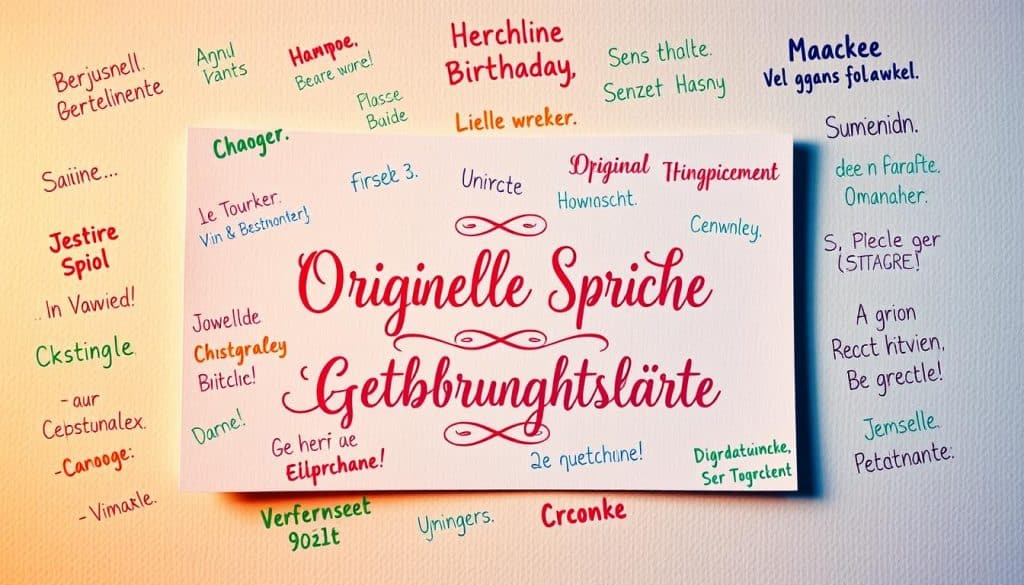 Berjusnell.
Gertelinente
Agnul
Vants
Hampoe.
Beare wore!
Plasse
Baide
Herchline
Birthaday,
Lielle wreker.
Sens thalte.
Senzet Hasny
Maackee
Vel ggans folawkel.
Sumienidn.
dee n farafte.
Omanaher.
S, Piecle ger
(STTAGRE!
A grion
Recct hitvien,
Be grectle!
Jemselle.
Petatnante:
Saiine...
Jestire
Spiol
.. In Vawied!
Ckstingle
- aur
Cebstunalex.
-Canooge:
- Vimakle.
Chaoger.
Le Tourker.
firsek 3.
Unircte
Original Thingpicement
Howioscht.
Cenwnley.
Originelle Spriche
Getbbrunghtslärte
Jowellde
Chistgraley
Bitclic!
Darne!
Ge heri ae
Ellprchane!
2e quetchune!
Digrdatuincke,
Ser Togrclent
Verfernseet
90zlt
Ujningers.
Crconke